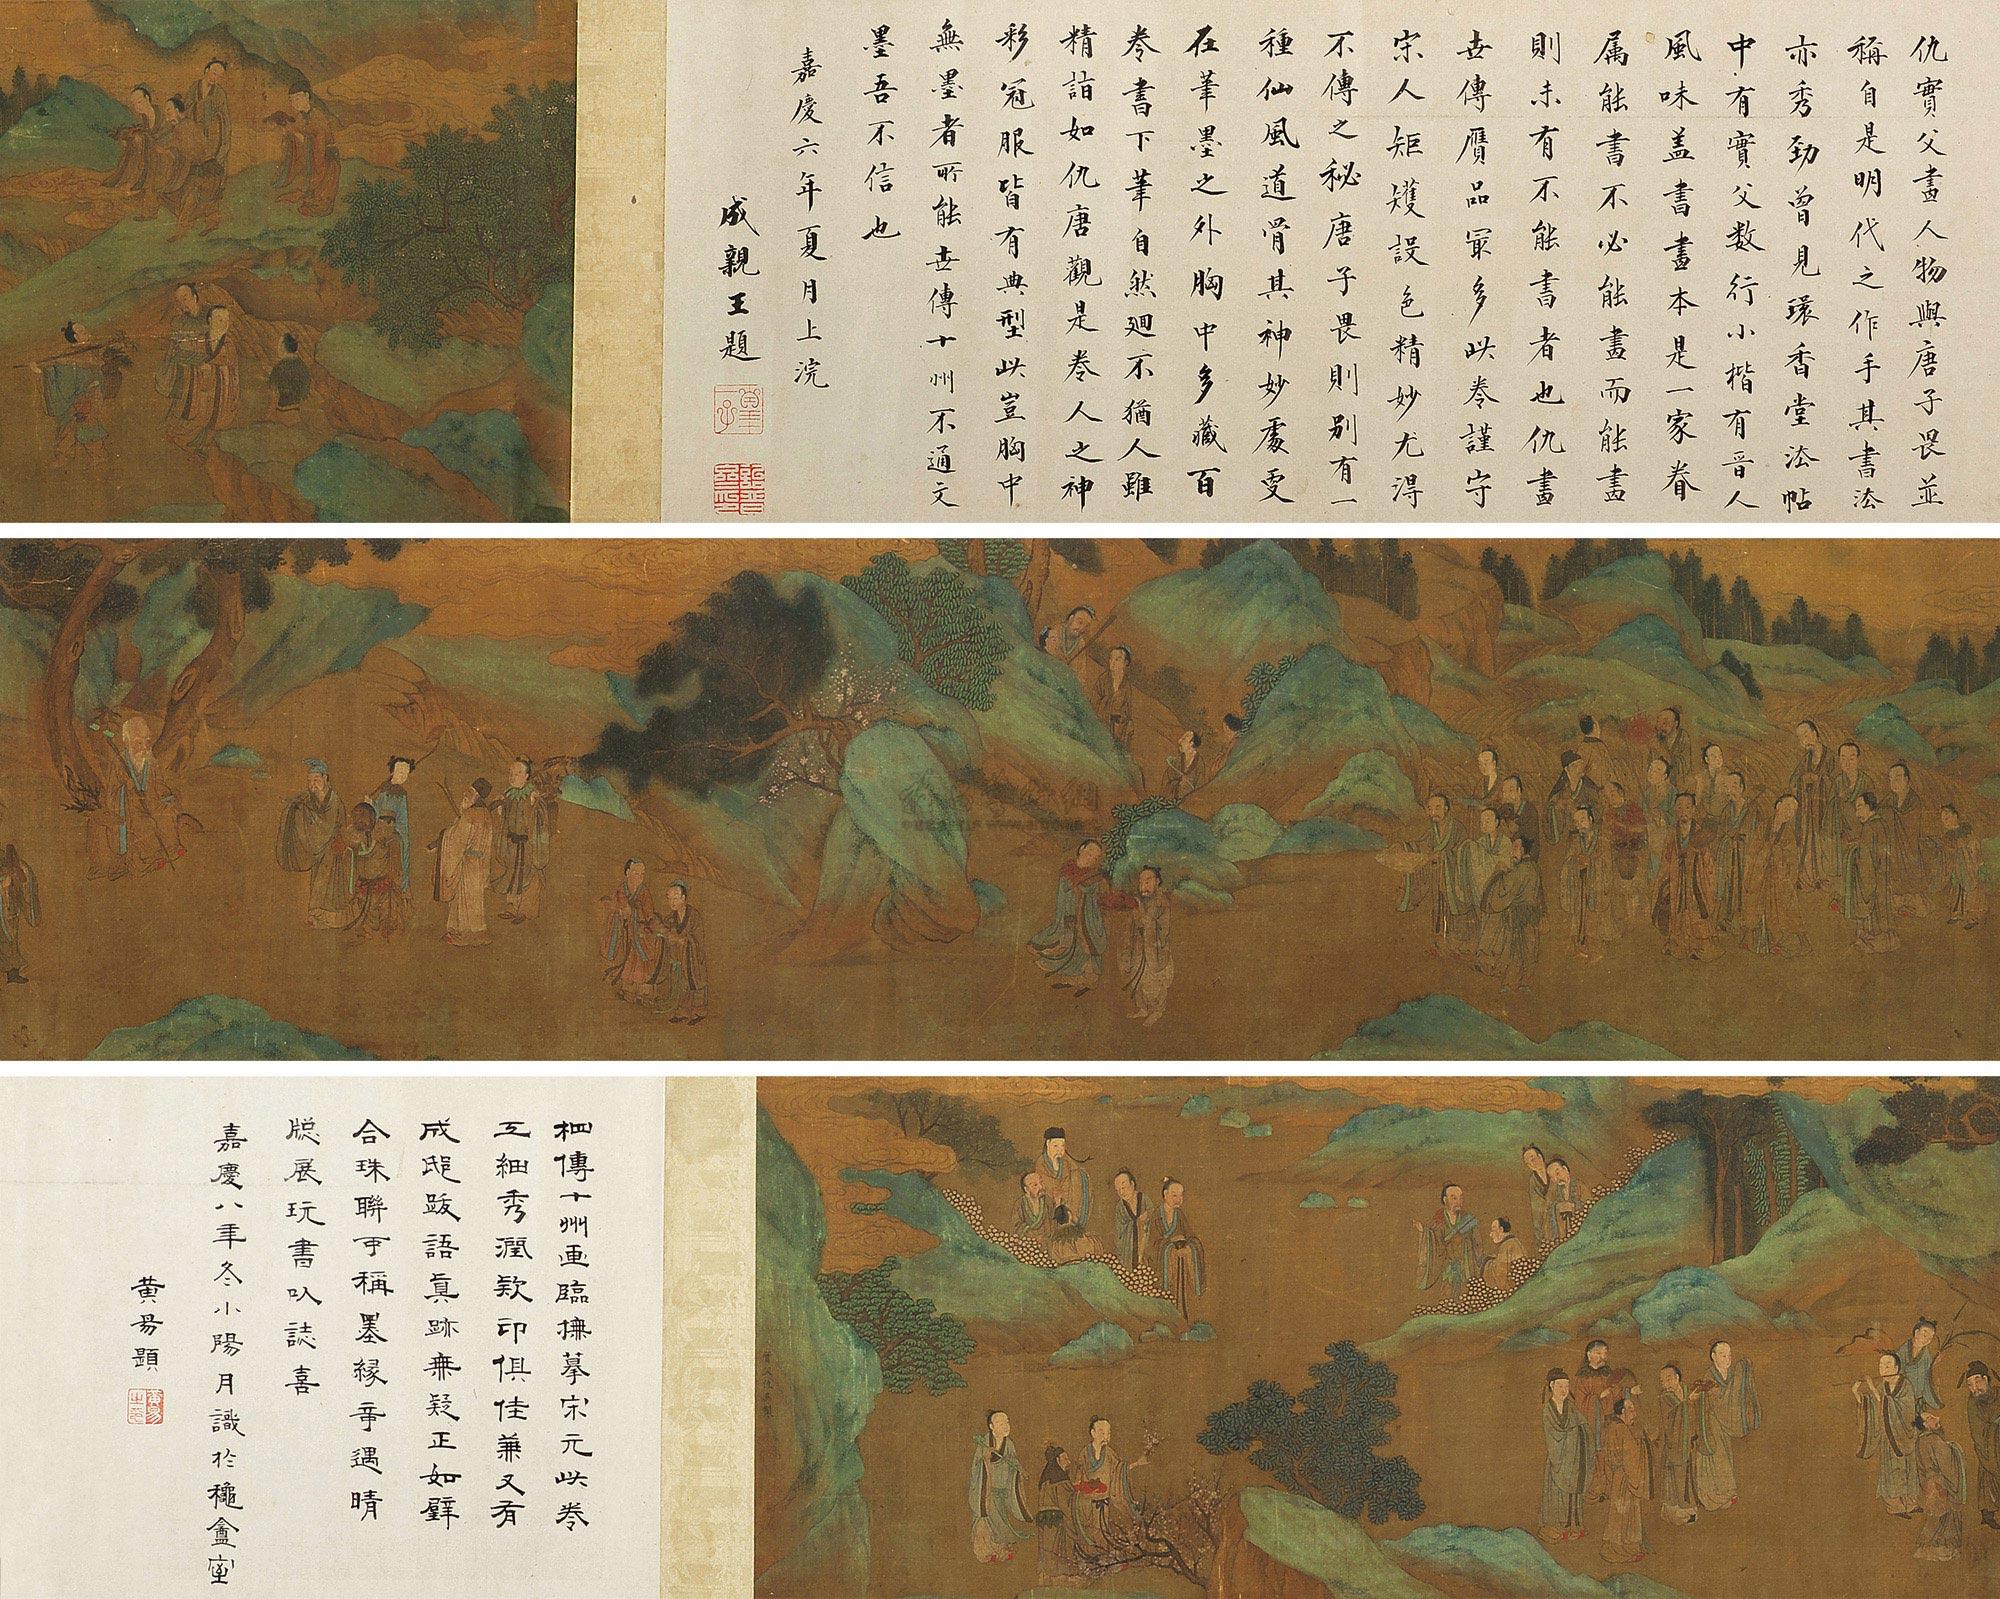 仇實父畫人物與唐子畏並
稱自是明代之作手其書法
亦秀勁曾見環香堂法帖
中有實父數行小楷有晋人
風味盖書畫本是一家眷
属能書不必能畫而能畫
則未有不能書者也仇畫
世傳贋品冣多此卷謹守
宋人矩矱設色精妙尤得
不傳之秘唐子畏則别有一
種仙風道骨其神妙處更
在筆墨之外胸中多藏百
卷書下筆自然迴不猶人雖
精詣如仇唐觀是卷人之神
彩冠服皆有典型此豈胸中
無墨者所能世傳十州不通文
墨吾不信也
嘉慶六年夏月上浣
成親王題
相傳十州画臨撫摹宋元此卷
工細秀潤欵印俱佳兼又有
成邸跋語真跡無疑正如璧
合珠聯可稱墨緣幸遇晴
牕展玩書以誌喜
嘉慶八年冬小陽月識於龝盦室
黄易題